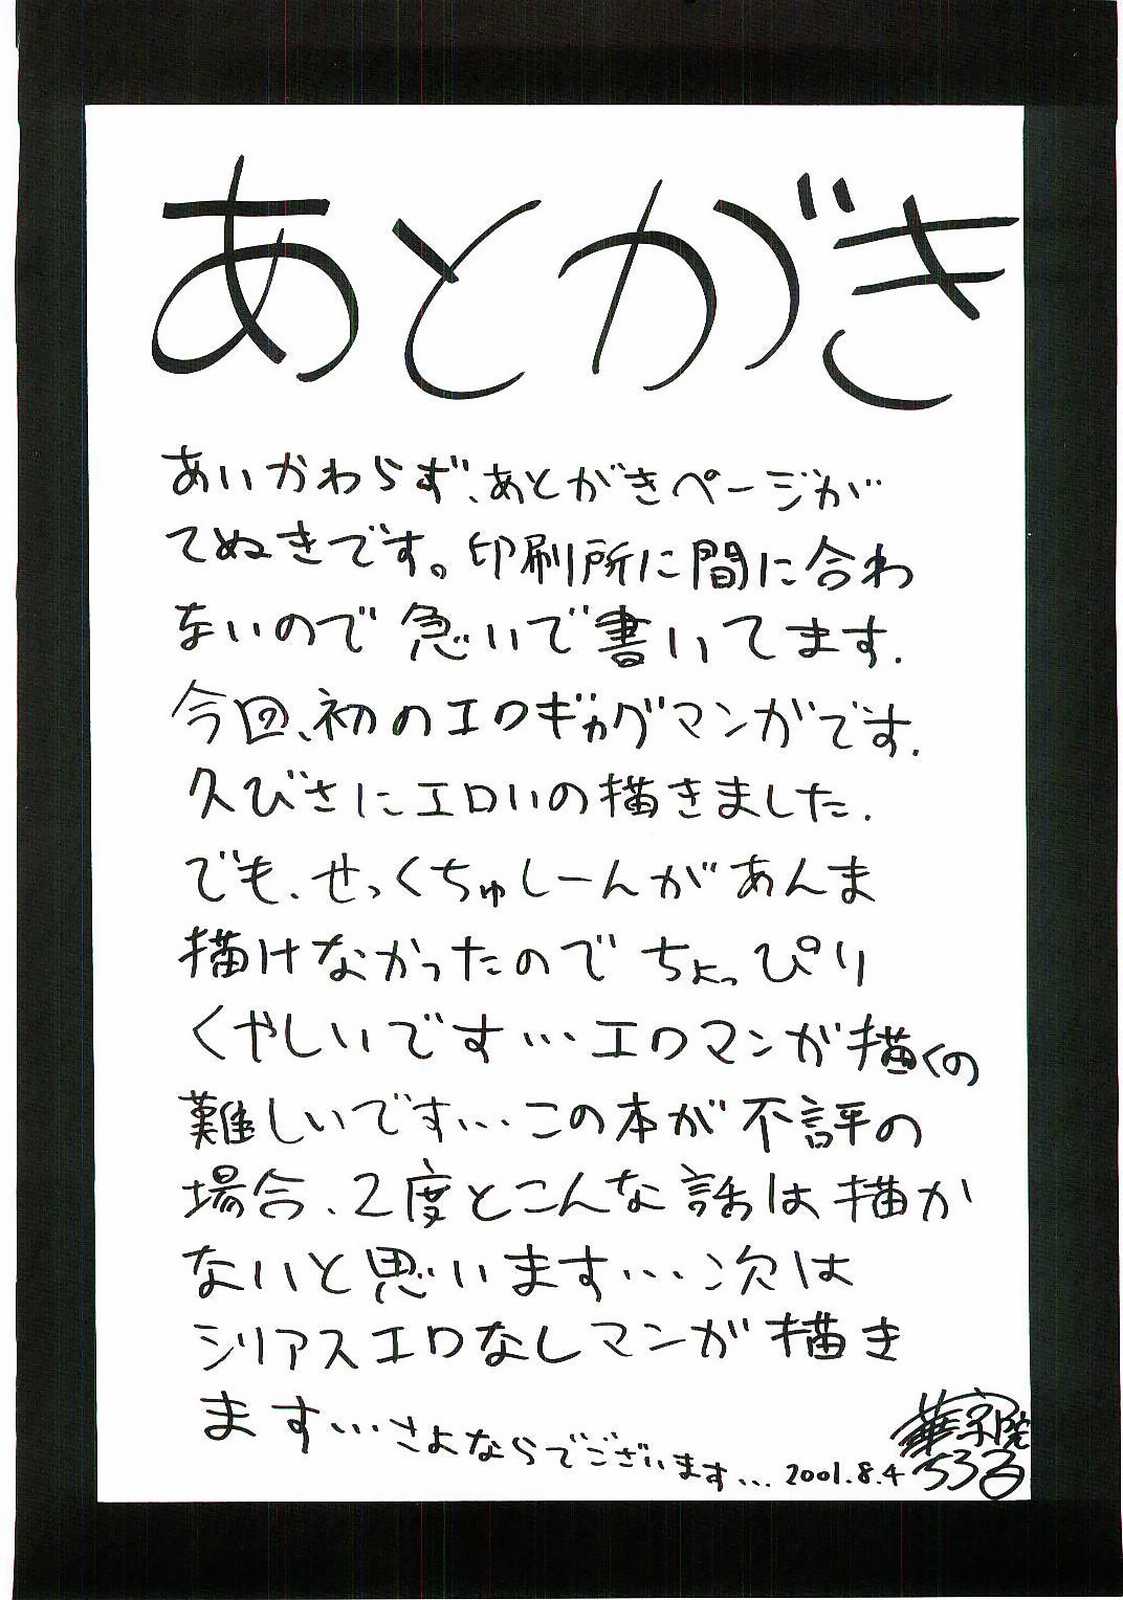 あとがき
あいかわらず、あとがきページが
てぬきです。印刷所に間に合わ
ないので急いで書いてます.
今回、初のエロギャグマンガです.
久びさにエロいの描きました.
でも、せっくちゅしーんがあんま
描けなかったのでちょっぴり
くやしいです…エロマンガ描くの
難しいです…この本が不評の
場合、2度とこんな話は描か
ないと思います…次は
シリアスエロなしマンガ描き
ます…さよならでございます…
2001.8.4
ちろる